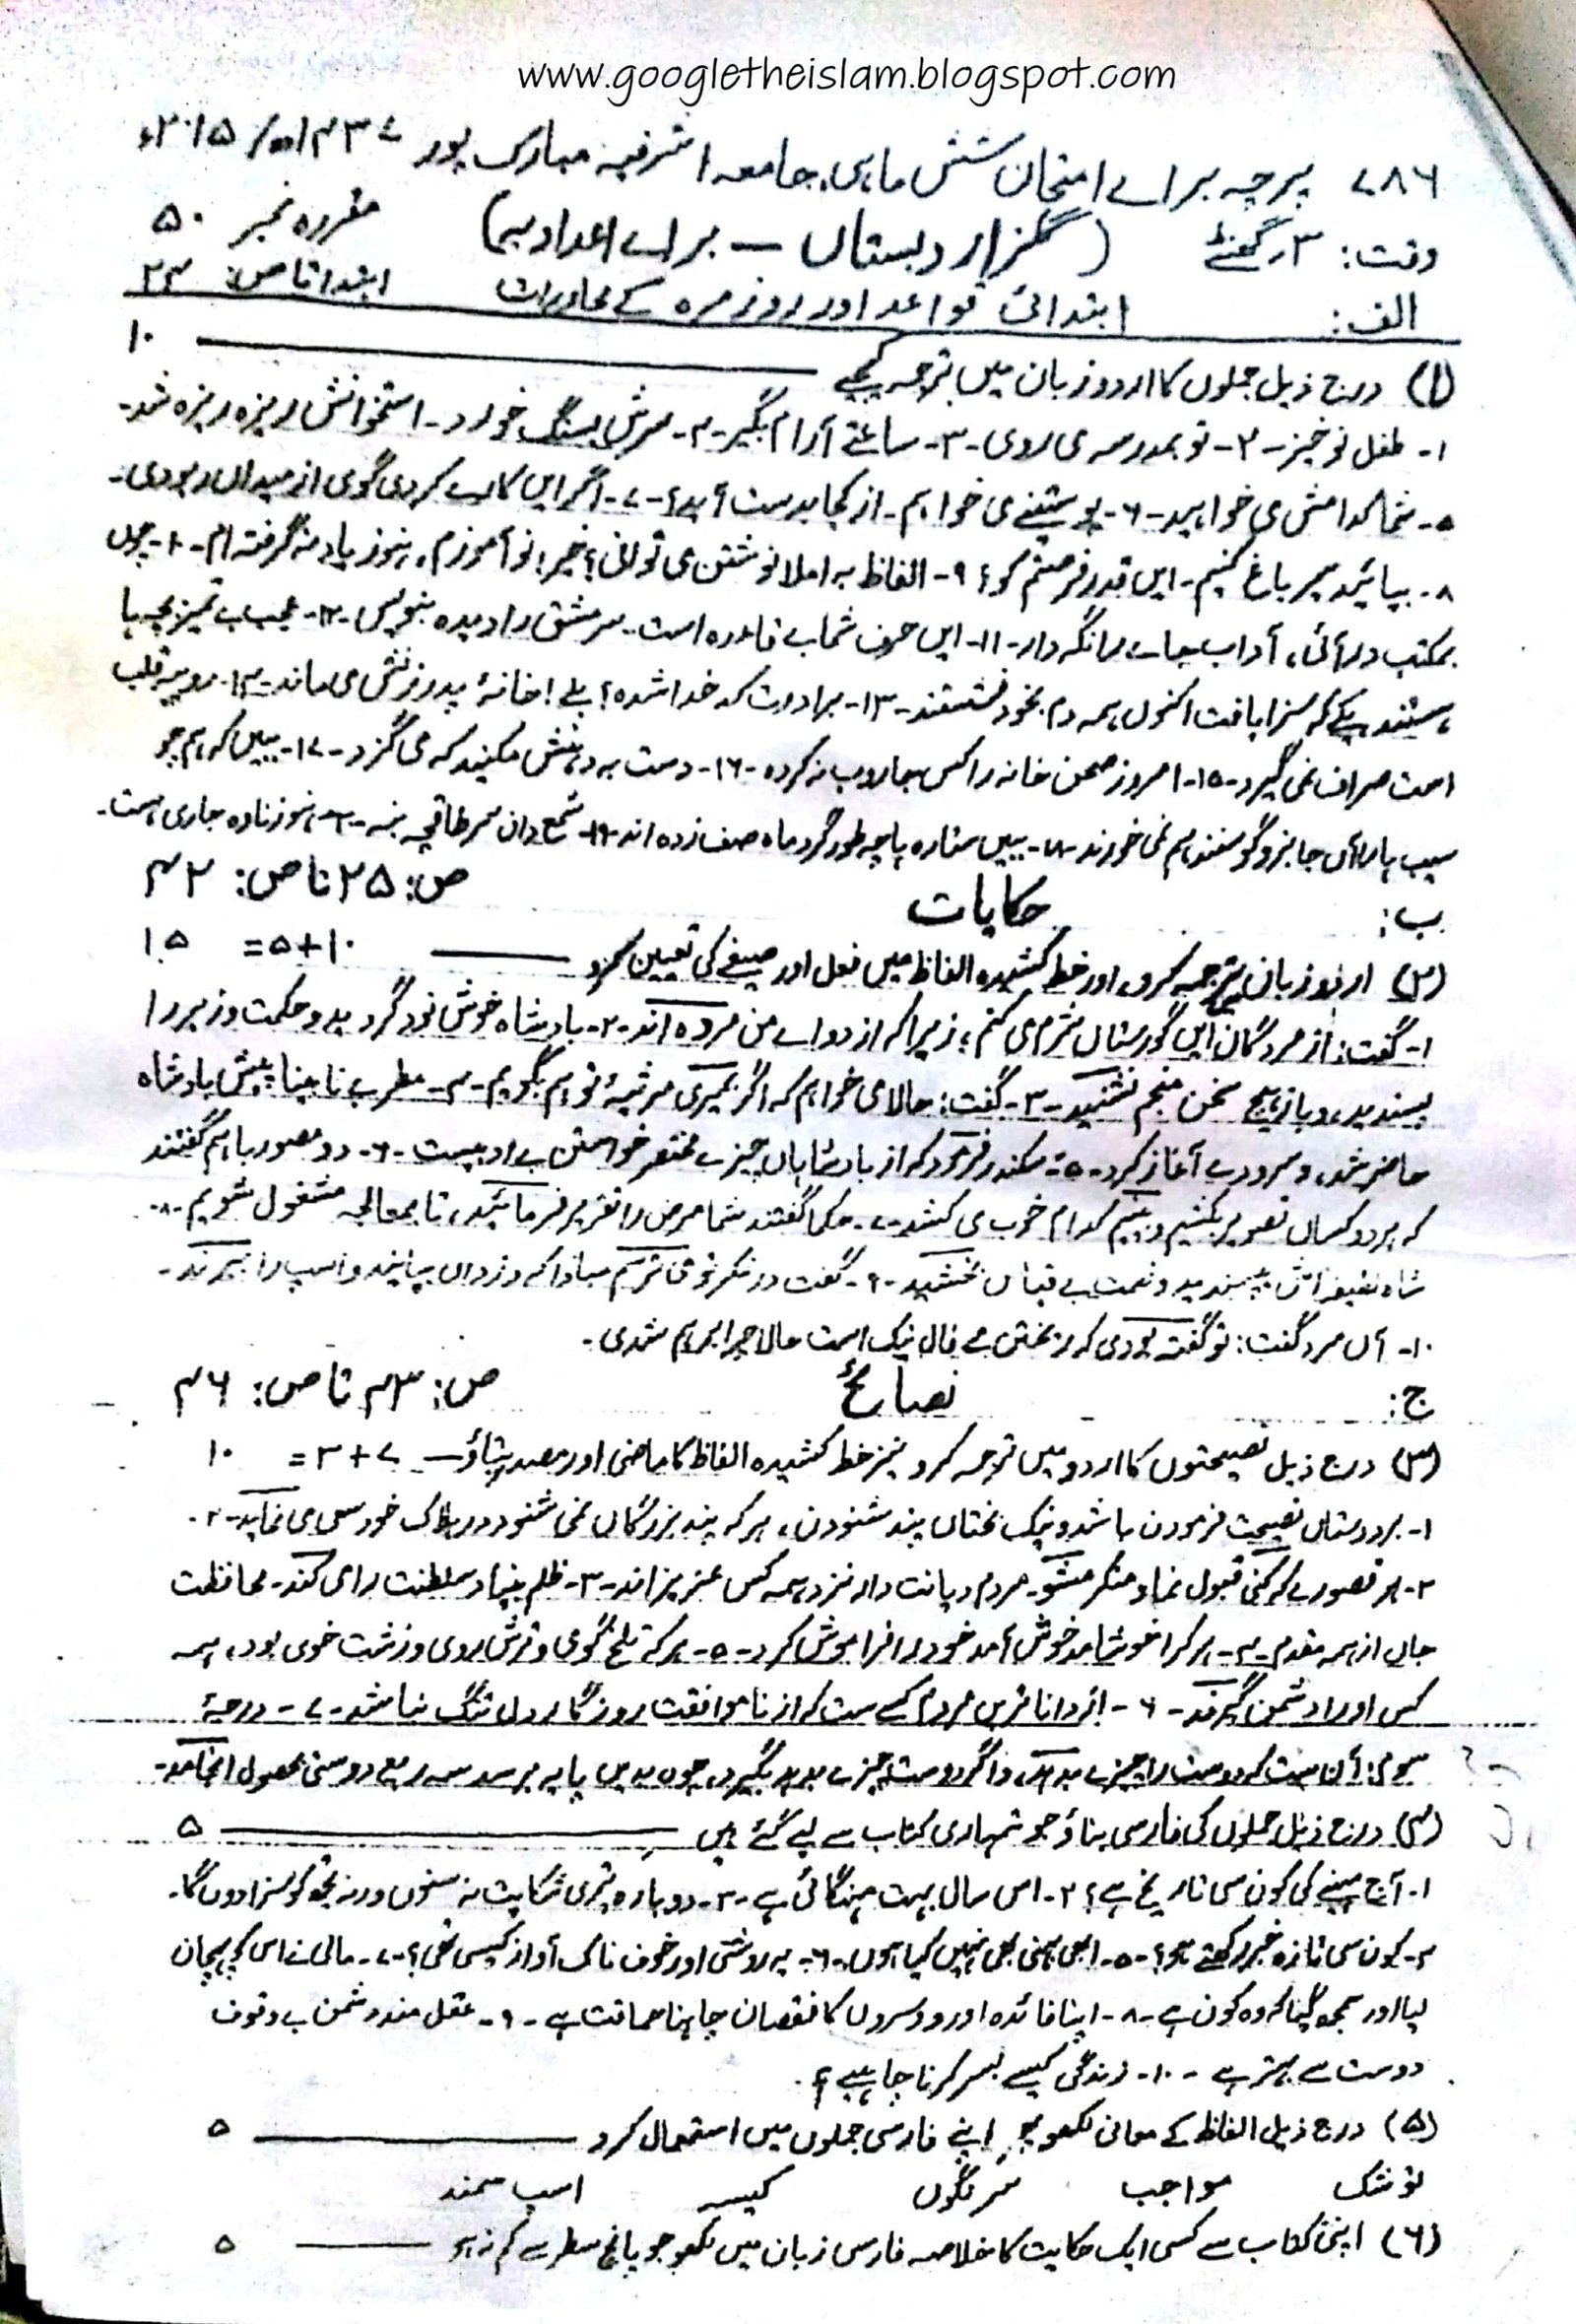 www.googletheislam.blogspot.com
۷۸۶ پرچہ براے امتحان شش ماہی، جامعہ اشرفیہ مبارک پور ۱۴۳۷ھ/۲۰۱۵ء
وقت: ۳؍گھنٹے (گلزار دبستاں — براے اعدادیہ) مقررہ نمبر ۵۰
الف: ابتدائی قواعد اور روز مرہ کے محاورات ابتدا تا ص: ۲۴
(۱) درج ذیل جملوں کا اردو زبان میں ترجمہ کیجیے ۱۰
۱- طفل نوخیز- ۲- تو بمدرسہ می روی- ۳- ساعتے آرام بگیر- ۴- سرش بسنگ خورد- استخوانش ریزہ ریزہ شد-
۵- شما کدامش می خواہید- ۶- پوستینے می خواہم- از کجا بدست آید؟- ۷- اگر ایں کار کردی گوی از میداں ربودی-
۸- بیائید سیر باغ کنیم- ایں قدر فرصتم کو؟ ۹- الفاظ بہ املا نوشتن می توانی؟ خیر! نو آموزم، ہنوز یاد نہ گرفتہ ام- ۱۰- چوں
بمکتب درآئی، آداب بجا نگہ دار- ۱۱- ایں حرف شما بے قاعدہ است- سرمشق را دیدہ بنویس- ۱۲- عجب بے تمیز بچہ ہا
ہستند یکے کہ سزا یافت اکنوں ہمہ دم بخود نشستند- ۱۳- برادرت کدخدا شدہ؟ بلے! خانۂ پدر زنش می ماند- ۱۴- روپیہ قلب
است صراف نمی گیرد- ۱۵- امروز صحن خانہ را کس جاروب نہ کردہ- ۱۶- دست بہ دہنش مکنید کہ می گزد- ۱۷- ببیں کہ ہم چو
سیب ہا را آں جا بز و گوسفند ہم نمی خورند- ۱۸- ببیں ستارہ ہا چہ طور گرد ماہ صف زدہ اند- ۱۹- شمع دان سر طاقچہ بنہ- ۲۰- ہنوز نادہ جاری ہست-
ب: حکایات ص: ۲۵ تا ص: ۴۲
(۲) اردو زبان میں ترجمہ کرو، اور خط کشیدہ الفاظ میں فعل اور صیغے کی تعیین کرو ۱۰+۵= ۱۵
۱- گفت: از مردگان ایں گورستاں شرم می کنم؛ زیرا کہ از دواے من مردہ اند- ۲- بادشاہ خوش نود گردید و حکمت وزیر را
پسندید، و باز ہیچ سخن منجم نشنید- ۳- گفت: حالا می خواہم کہ اگر بمیری مرثیۂ تو ہم بگویم- ۴- مطرب نابینا پیش بادشاہ
حاضر شد، و سرودے آغاز کرد- ۵- سکندر فرمود کہ از بادشاہاں چیزے مختصر خواستن بے ادبیست- ۶- دو مصور باہم گفتند
کہ ہر دو کساں تصویر بکشیم و ببینیم کدام خوب می کشد- ۷- حکما گفتند شما مرض را تقریر فرمائید، تا بمعالجہ مشغول شویم- ۸-
شاہ لطیفہ اش بپسندید و نعمت بے قیاس بخشید- ۹- گفت در فکر تو می ترسم مبادا کہ دزداں بیایند و اسپ را ببرند-
۱۰- آں مرد گفت: تو گفتہ بودی کہ رنجش مے فال نیک است حالا چرا برہم شدی-
ج: نصائح ص: ۴۳ تا ص: ۴۶
(۳) درج ذیل نصیحتوں کا اردو میں ترجمہ کرو نیز خط کشیدہ الفاظ کا ماضی اور مصدر بتاؤ— ۷+۳= ۱۰
۱- بر دوستاں نصیحت فرمودن باشد و نیک بختاں پند شنودن، ہر کہ پند بزرگاں نمی شنود در ہلاک خود سعی می نماید-
۲- ہر قصورے کہ کنی قبول نما و منکر مشو- مردم دیانت دار نزد ہمہ کس عزیز اند- ۳- ظلم بنیاد سلطنت را می کند- محافظت
جاں از ہمہ مقدم- ۴- ہر کرا خوشامد خوش آمد خود را فراموش کرد- ۵- ہر کہ تلخ گوی و ترش روی و زشت خوی بود، ہمہ
کس او را دشمن گیرند- ۶- از دانا ترین مردم کسے ست کہ از ناموافقت روزگار دل تنگ نباشد- ۷- درجۂ
سومی: آں ست کہ دوست را چیزے بدہد، و اگر دوست چیزے بدہد بگیرد، چوں بدیں پایہ برسد سہ ربع دوستی بحصول انجامد-
(۴) درج ذیل جملوں کی فارسی بناؤ جو تمہاری کتاب سے لیے گئے ہیں ۵
۱- آج مہینے کی کون سی تاریخ ہے؟ ۲- اس سال بہت مہنگائی ہے- ۳- دوبارہ تیری شکایت نہ سنوں ورنہ تجھ کو سزا دوں گا-
۴- کون سی تازہ خبر رکھتے ہو؟- ۵- ابھی بمبئی بھی نہیں گیا ہوں- ۶- یہ روشنی اور خوف ناک آواز کیسی تھی؟- ۷- مالی نے اس کو پہچان
لیا اور سمجھ گیا کہ وہ کون ہے- ۸- اپنا فائدہ اور دوسروں کا نقصان چاہنا حماقت ہے- ۹- عقل مند دشمن بے وقوف
دوست سے بہتر ہے- ۱۰- زندگی کیسے بسر کرنا چاہیے؟
(۵) درج ذیل الفاظ کے معانی لکھو پھر اپنے فارسی جملوں میں استعمال کرو ۵
توشک مواجب سرنگوں کیسہ اسپ سمند
(۶) اپنی کتاب سے کسی ایک حکایت کا خلاصہ فارسی زبان میں لکھو جو پانچ سطر سے کم نہ ہو ۵